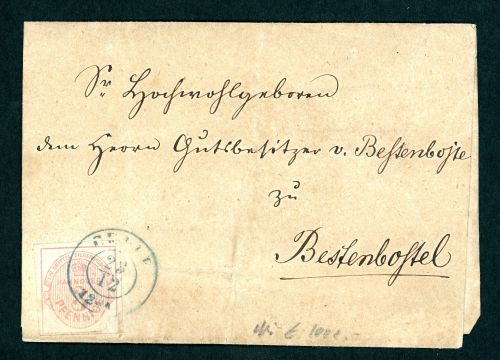 Sr Hochwohlgeboren
dem Herrn Gutsbesitzer v. Bestenbostel
zu
Bestenbostel
CELLE
12
HANNOVER
PFENNIG